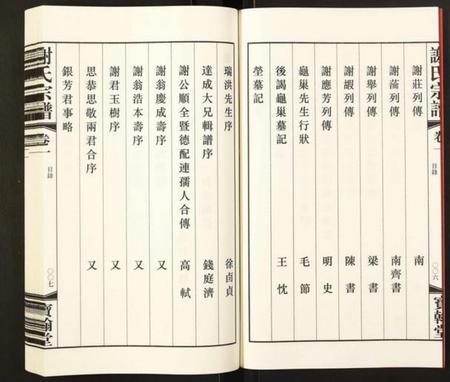 謝氏宗譜 卷一 目錄 〇〇六 寶翰堂
謝莊列傳 南
謝㵍列傳 南齊書
謝舉列傳 梁書
謝嘏列傳 陳書
謝應芳列傳 明史
龜巢先生行狀 毛節
後謁龜巢墓記 王忱
塋墓記
瑞洪先生序 徐卣貞
達成大兄輯譜序 錢庭濟
謝公順全暨德配連孺人合傳 高軾
謝翁慶成壽序 又
謝翁浩本壽序 又
謝君玉樹序 又
思恭思敬兩君合序 又
銀芳君事略
謝氏宗譜 卷一 目錄 〇〇七 寶翰堂